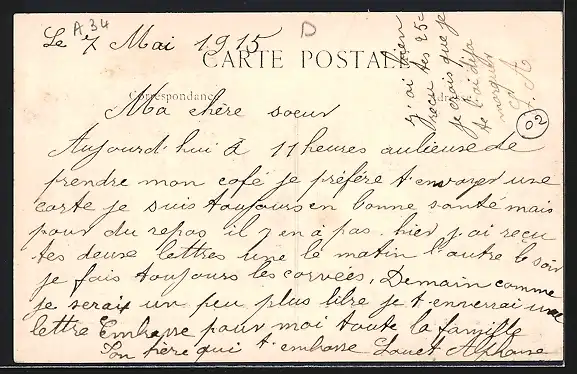 A 34
D
Le 7 Mai 1915
CARTE POSTALE
Correspondance
Ma chère soeur
Aujourd'hui à 11 heures aulieuse de
prendre mon café je préfére t'envoyer une
carte je suis toujours en bonne santé mais
pour du repos il y en à pas. hier j'ai reçu
tes deuse lettres une le matin l'autre le soir
je fais toujours les corvées, Demain comme
je serai un peu plus libre je t'enverrai une
lettre Embrasse pour moi toute la famille
Ton frère qui t'embrasse Louet Alphonse
j'ai bien
reçu tes 25c
je crois que je
te l'ai déja
marquer
L. A
02